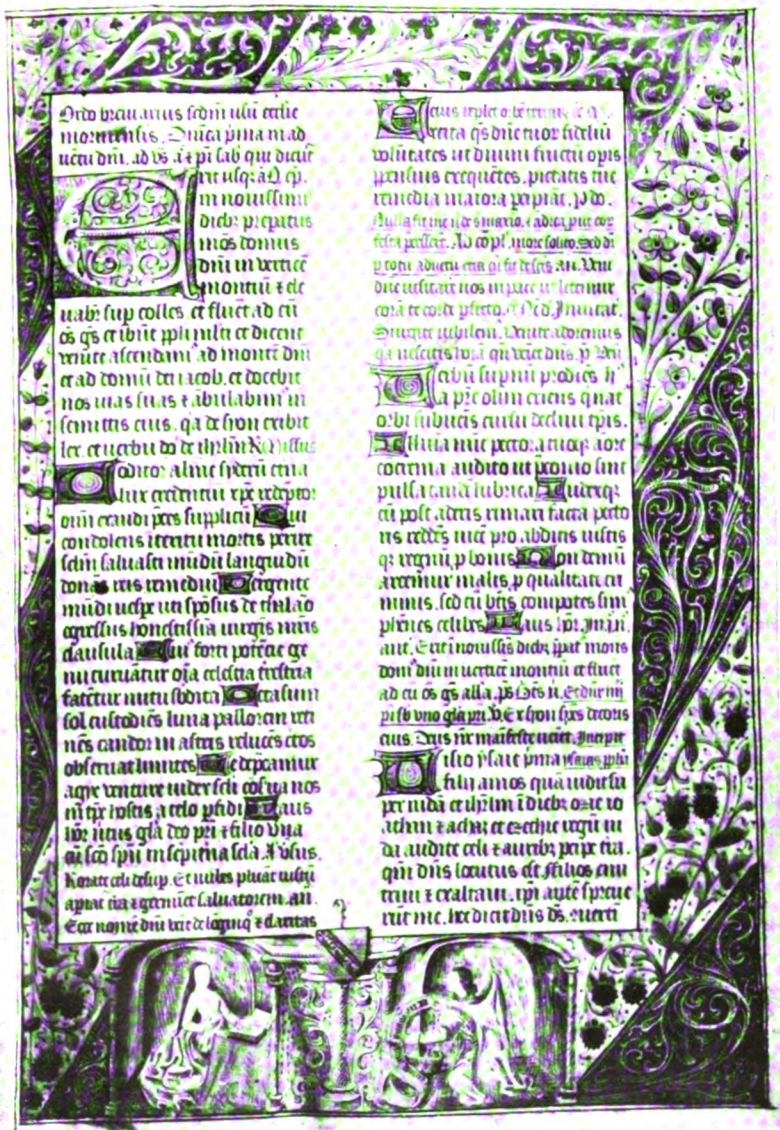 Ordo breviarius scdm usu ecclie
morinensis. Dnica pma in ad
uetu dni. ad vs a pi sab qui dicut
Erit usq ad cp.
In nouissimis
dieb preparatus
mos domus
dni in vertice
montiu et ele
uabit sup colles et fluet ad eu
os gs et ibut ppli multi et dicent
venite ascendam ad monte dni
et ad domu dei iacob. et docebit
nos uias suas et abulabim in
semitis eius. qa de sion exibit
lex. et uerbu do de ihrlm
Conditor alme syderu etna
lux credentiu xpe redeptor
oim exaudi pces supplicu Qui
condolens iteritu mortis perire
sclm saluasti mudu laguidu
donas reis remediu Vergente
mudi uespe uti sposus de thalao
egressus honestissia uirgis mris
clausula Cuius forti potecie ge
nu curuatur oia celestia trestria
fatetur nutu sbdita Occasum
sol custodies luna pallorem reti
nes candor in astris reluces ctos
obseruat limites Te depcamur
agye venture iudex scli coserua nos
in tpr hostis a telo pfidi Laus
hor uirtus gla deo pri et filio una
cu sco spu in sepitna scla. A Vsus.
Rorate celi desup. Et nubes pluat iustu
apiat tra et germiet saluatorem. an.
Ecce nome dni veit de loginq et claritas
eius replet orbe terrau
Excita qs dne tuor fideliu
volutates ut diuini fructu opis
ppensius exequetes, pietatis tue
remedia maiora pcipiat. p do.
Ad copl. more solito.
p totu aduetu
dne uisitare nos in pace ut letemur
cora te corde pfecto. Inuitat.
Surgite uigilem. Venite adoremus
qa nescitis hora qn veiet dns. p Ven
Verbu supnu prodies
a pre olim exiens qui nat
orbi subuenis cursu decliui tpris.
Illuia nuc pectora tuoq aore
cocrema audito ut pconio sint
pulsa tande lubrica Iudexq
cu post aderis rimari facta pecto
ris redes uice pro abditis iustis
q regnu p bonis Non demu
arcemur malis, p qualitate cri
minis. sed cu btis compotes sim
phenes celibes Laus hor. In pri.
ant. Erit i nouissis dieb ppat mons
dom dni in uertice montiu et fluet
ad eu os gs alla. ps Btus u. Et dicit iiii
pi sb vno gla pri. V. Ex sion spes decoris
eius. Deus nr maifeste ueiet. Incipit
Visio ysaie pma
filii amos qua uidit su
per iuda et ihrlm i dieb ozie io
athan et achaz et ezechie regu iu
da audite celi et aurib pcipe tra.
qm dns locutus est. filios enu
triui et exaltaui. ipi aute spreue
rut me. hec dicit dns ds.